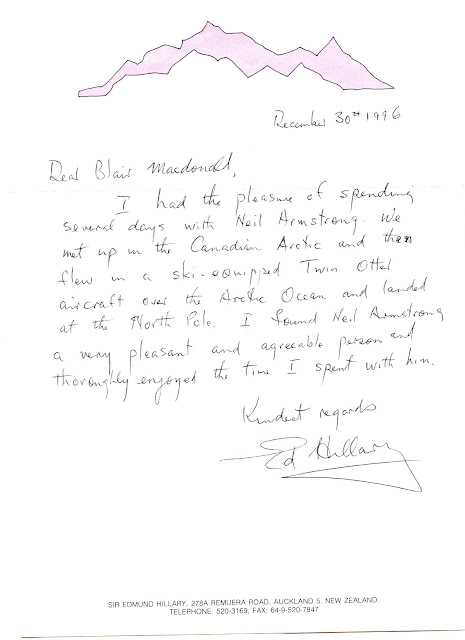 December 30th 1996
Dear Blair Macdonald,
I had the pleasure of spending
several days with Neil Armstrong. We
met up in the Canadian Arctic and then
flew in a ski-equipped Twin Otter
aircraft over the Arctic Ocean and landed
at the North Pole. I found Neil Armstrong
a very pleasant and agreeable person and
thoroughly enjoyed the time I spent with him.
Kindest regards
Ed Hillary
SIR EDMUND HILLARY, 278A REMUERA ROAD, AUCKLAND 5. NEW ZEALAND.
TELEPHONE: 520-3169, FAX: 64-9-520-7847